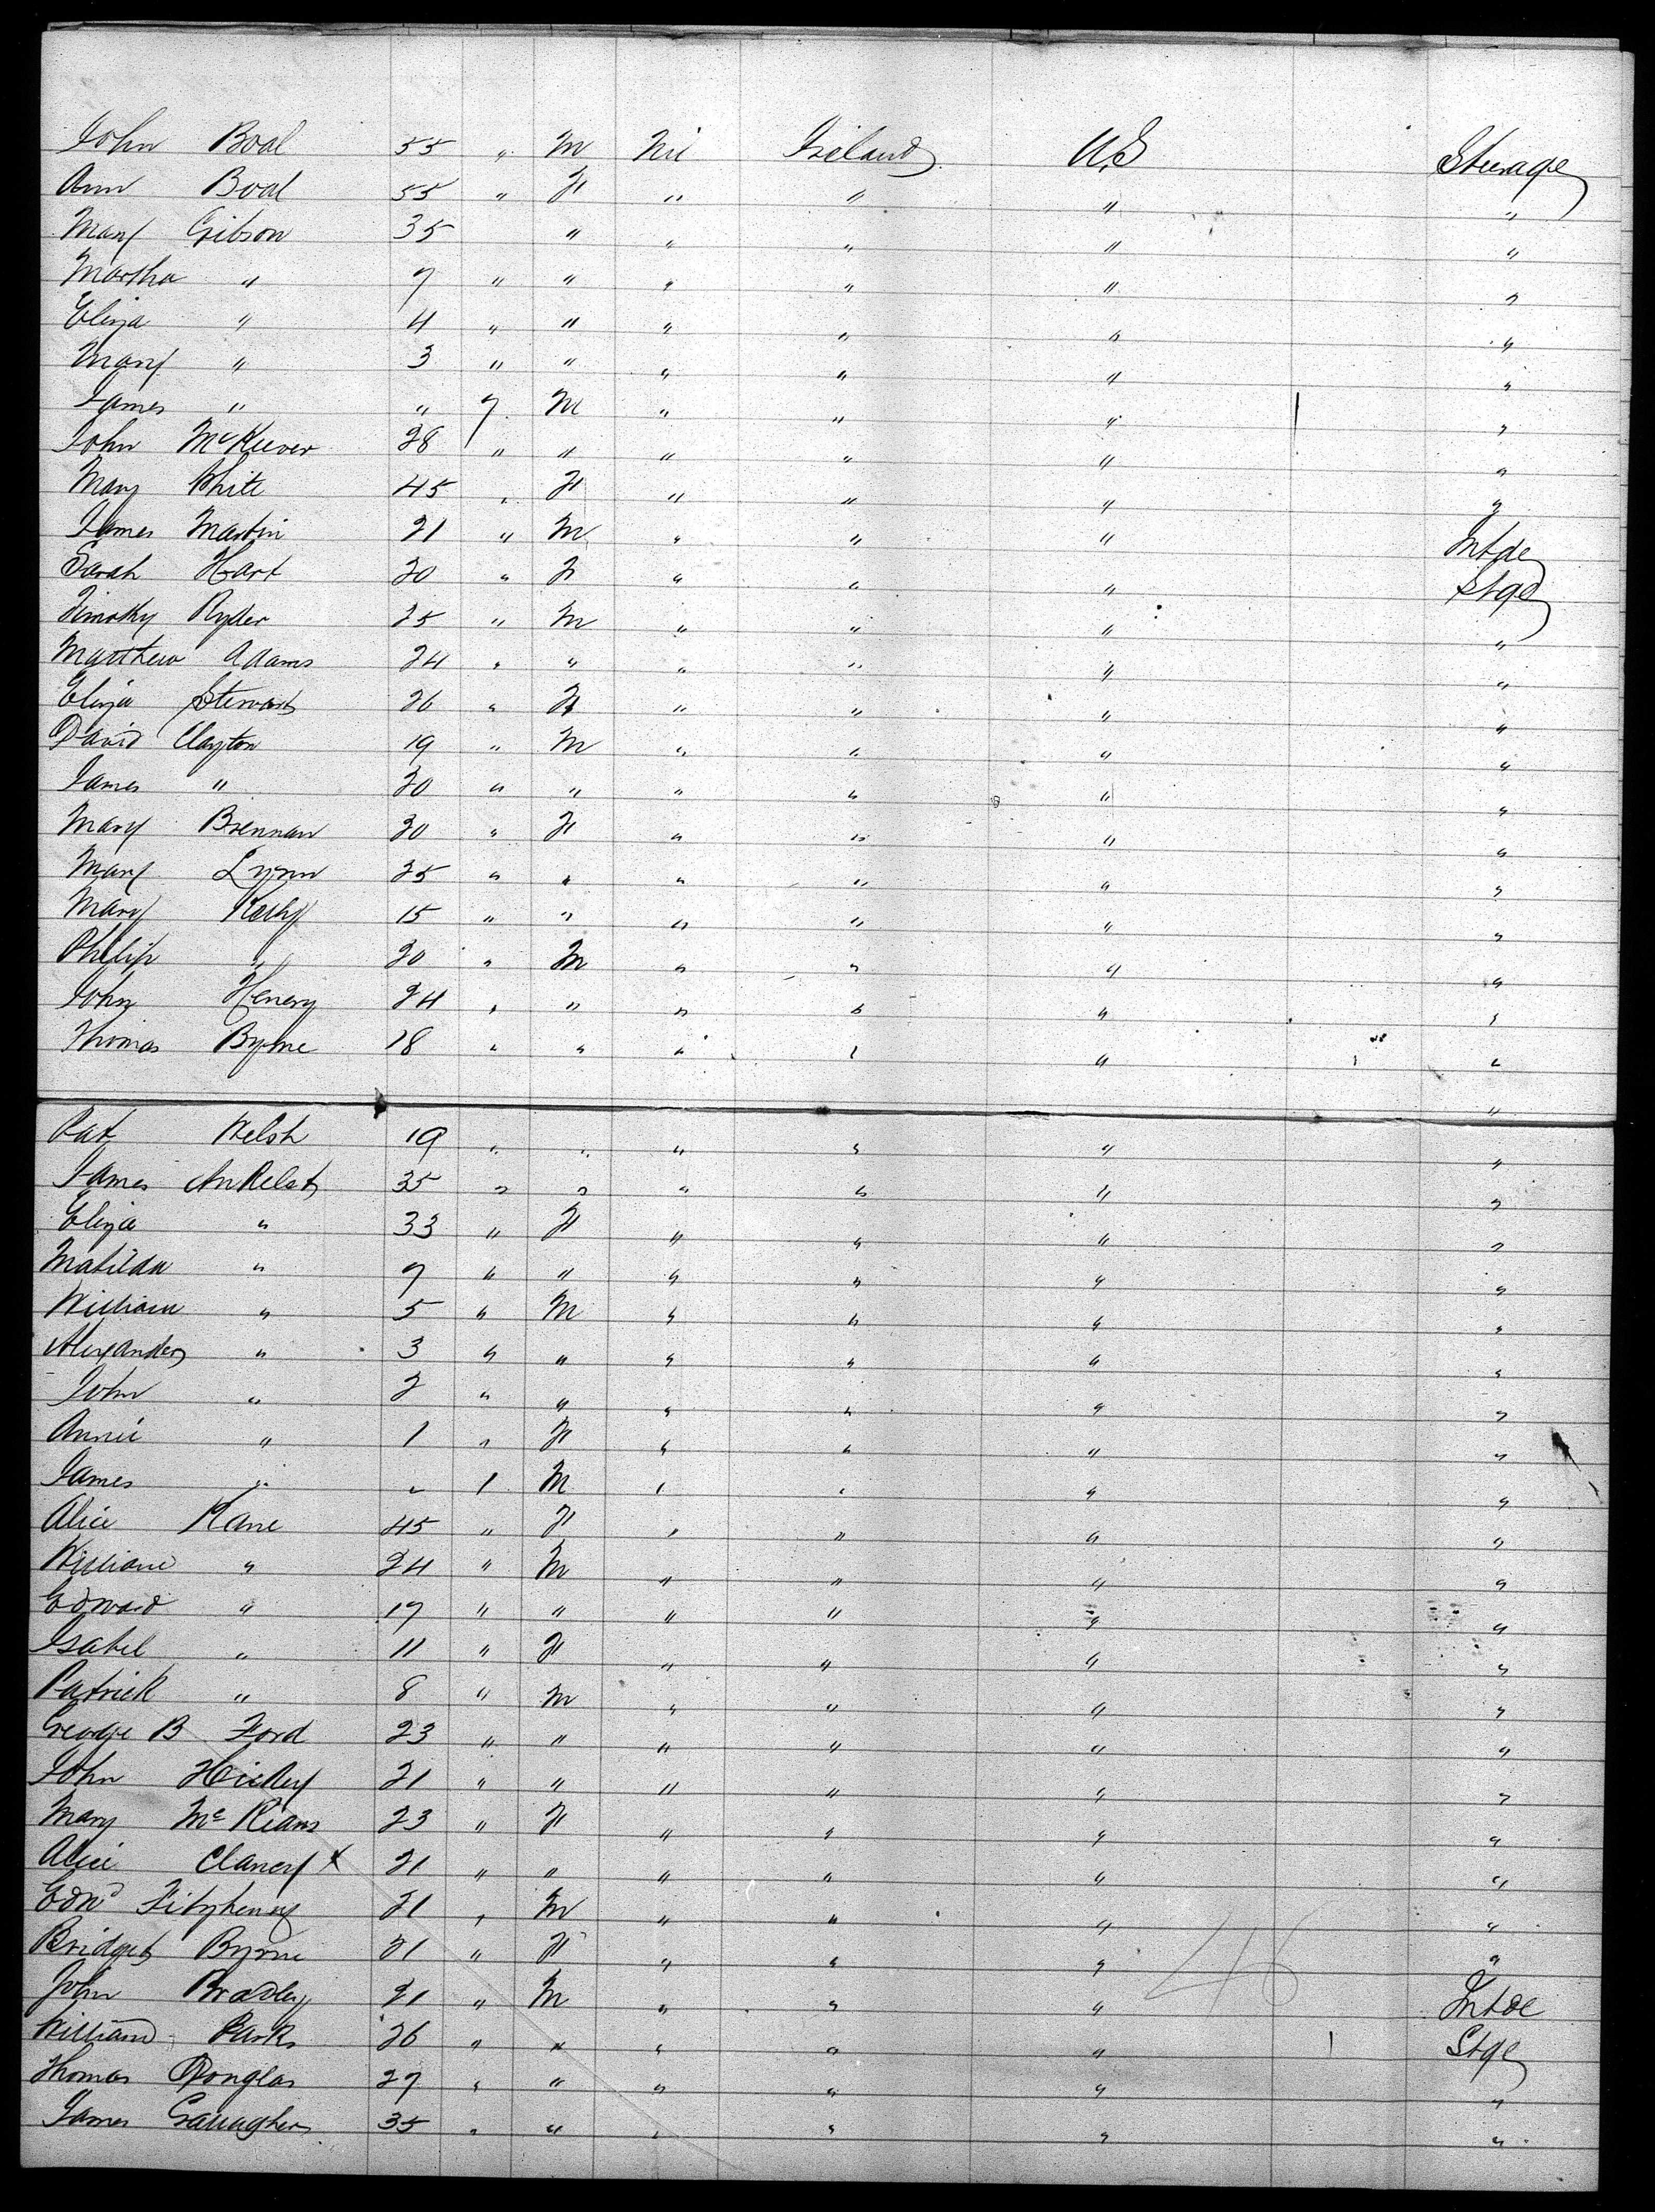 John Boal 55 " M Nil Ireland U.S Steerage
Ann Boal 55 " F " " " "
Mary Gibson 35 " " " " "
Martha " 7 " " " " " "
Eliza " 4 " " " " " "
Mary " 3 " " " " " "
James " " 7 M " " " "
John McKeever 28 " " " " " "
Mary White 45 " F " " " "
James Martin 21 " M " " " Intde
Sarah Hart 20 " F " " " Stge
Timothy Ryder 25 " M " " " "
Matthew Adams 24 " " " " " "
Eliza Stewart 26 " F " " " "
David Clayton 19 " M " " " "
James " 20 " " " " " "
Mary Brennan 30 " F " " " "
Mary Lynn 25 " " " " " "
Mary 15 " " " " " "
Philip " 20 " M " " " "
John Henery 24 " " " " " "
Thomas Byrne 18 " " " " " "
"
Pat Welsh 19 " " " " " "
James AnKelst 35 " " " " " "
Eliza " 33 " F " " " "
Matilda " 7 " " " " " "
William " 5 " M " " " "
Alexander " 3 " " " " " "
John " 2 " " " " " "
Annie " 1 " F " " " "
James " " 1 M " " " "
Alice Kane 45 " F " " " "
William " 24 " M " " " "
Edward " 17 " " " " " "
Isabel " 11 " F " " " "
Patrick " 8 " M " " " "
George B Ford 23 " " " " " "
John Hickey 21 " " " " " "
Mary McKians 23 " F " " " "
Alice Clancy x 21 " " " " " "
Edwd Fitzhenry 21 " M " " " "
Bridget Byrne 21 " F " " " "
John Bradley 21 " M " " " Intde
William Parks 26 " " " " " Stge
Thomas Douglas 27 " " " " " "
James Gallagher 35 " " " " " "
46